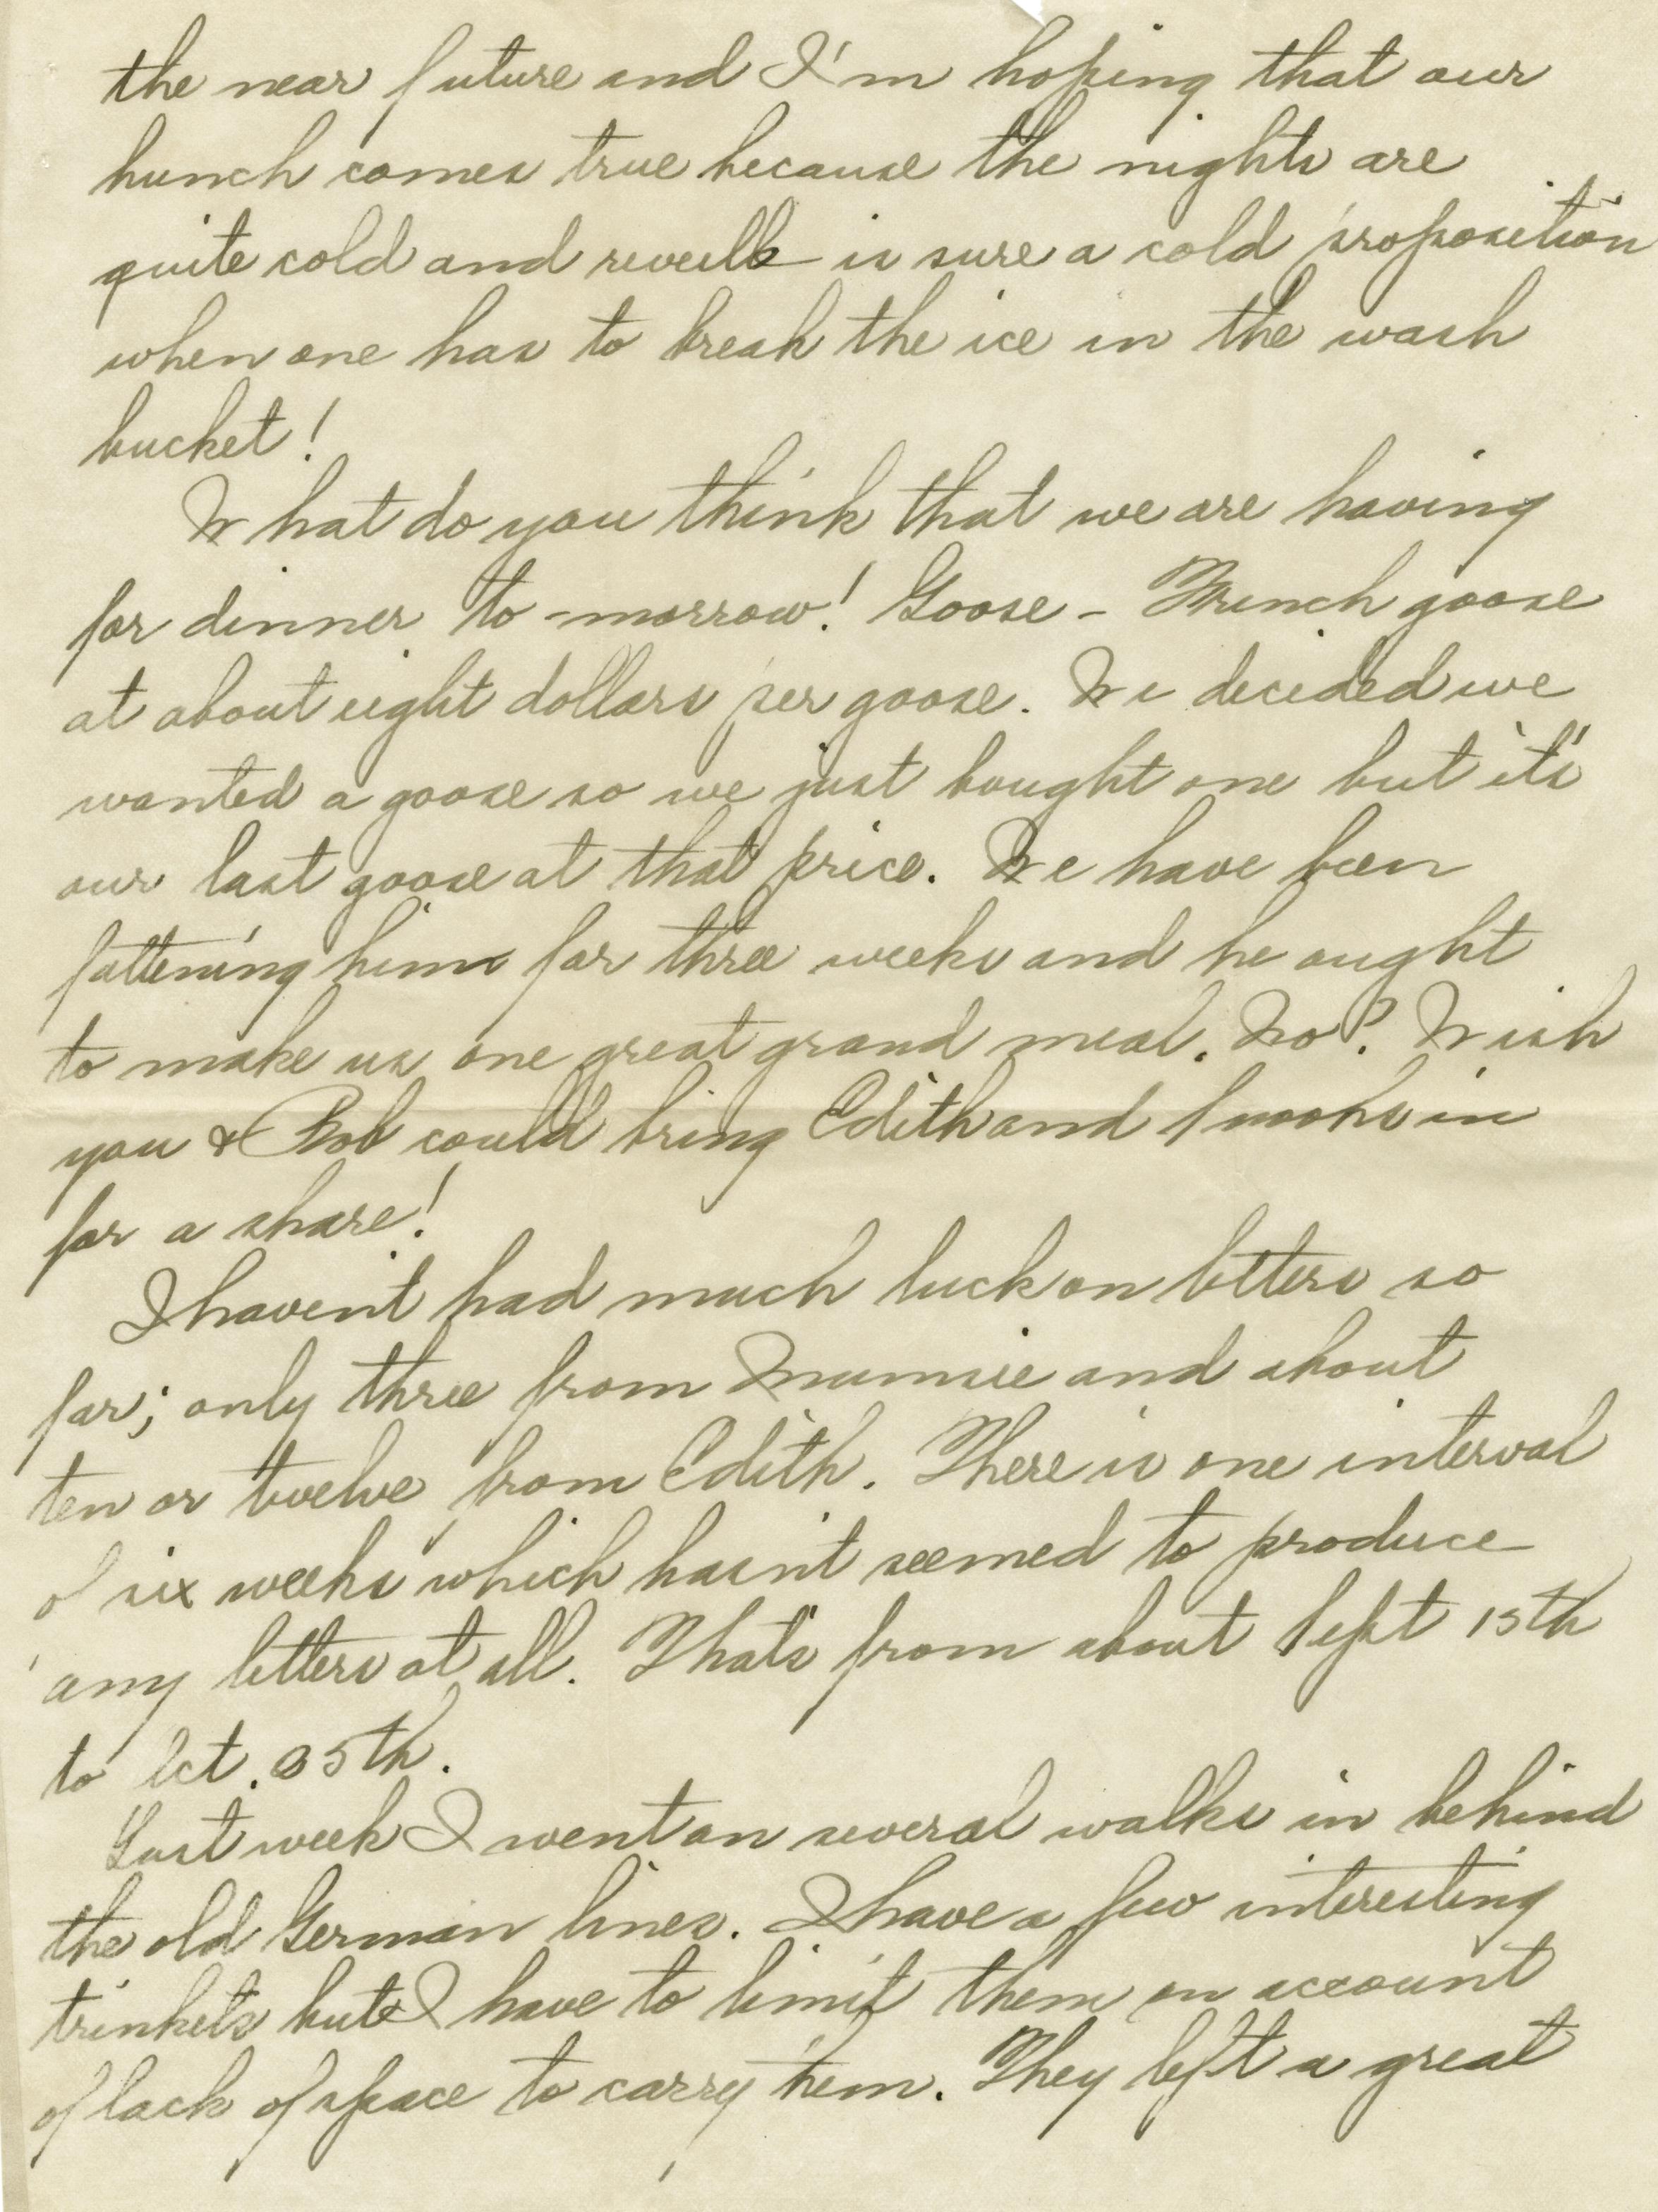 the near future and I'm hoping that our
hunch comes true because the nights are
quite cold and reveille is sure a cold proposition
when one has to break the ice in the wash
bucket!
What do you think that we are having
for dinner to-morrow! Goose - French goose
at about eight dollars per goose. We decided we
wanted a goose so we just bought one but it's
our last goose at that price. We have been
fattening him for three weeks and he ought
to make us one great grand meal. No? Wish
you & Bob could bring Edith and Snooks in
for a share!
I haven't had much luck on letters so
far; only three from Mumsie and about
ten or twelve from Edith. There is one interval
of six weeks which hasn't seemed to produce
any letters at all. That's from about Sept 15th
to Oct. 25th.
Last week I went on several walks in behind
the old German lines. I have a few interesting
trinkets but I have to limit them on account
of lack of space to carry them. They left a great